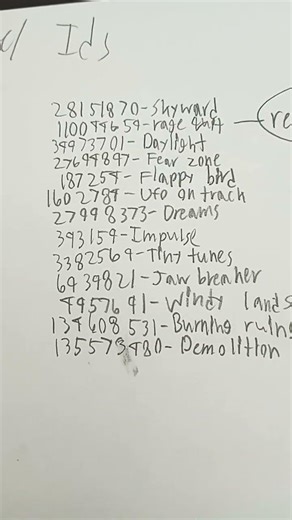 Ids
28151870-Skyward
110099659-rage quit
re
39973701-Daylight
27699897-Fear zone
187259-Flappy bird
1602789-Ufo on track
27998373-Dreams
393159-Impulse
3382569-Tiny tunes
6939821-Jaw breaker
9957691-Windy lands
139608531-Burning ruins
135573980-Demolition